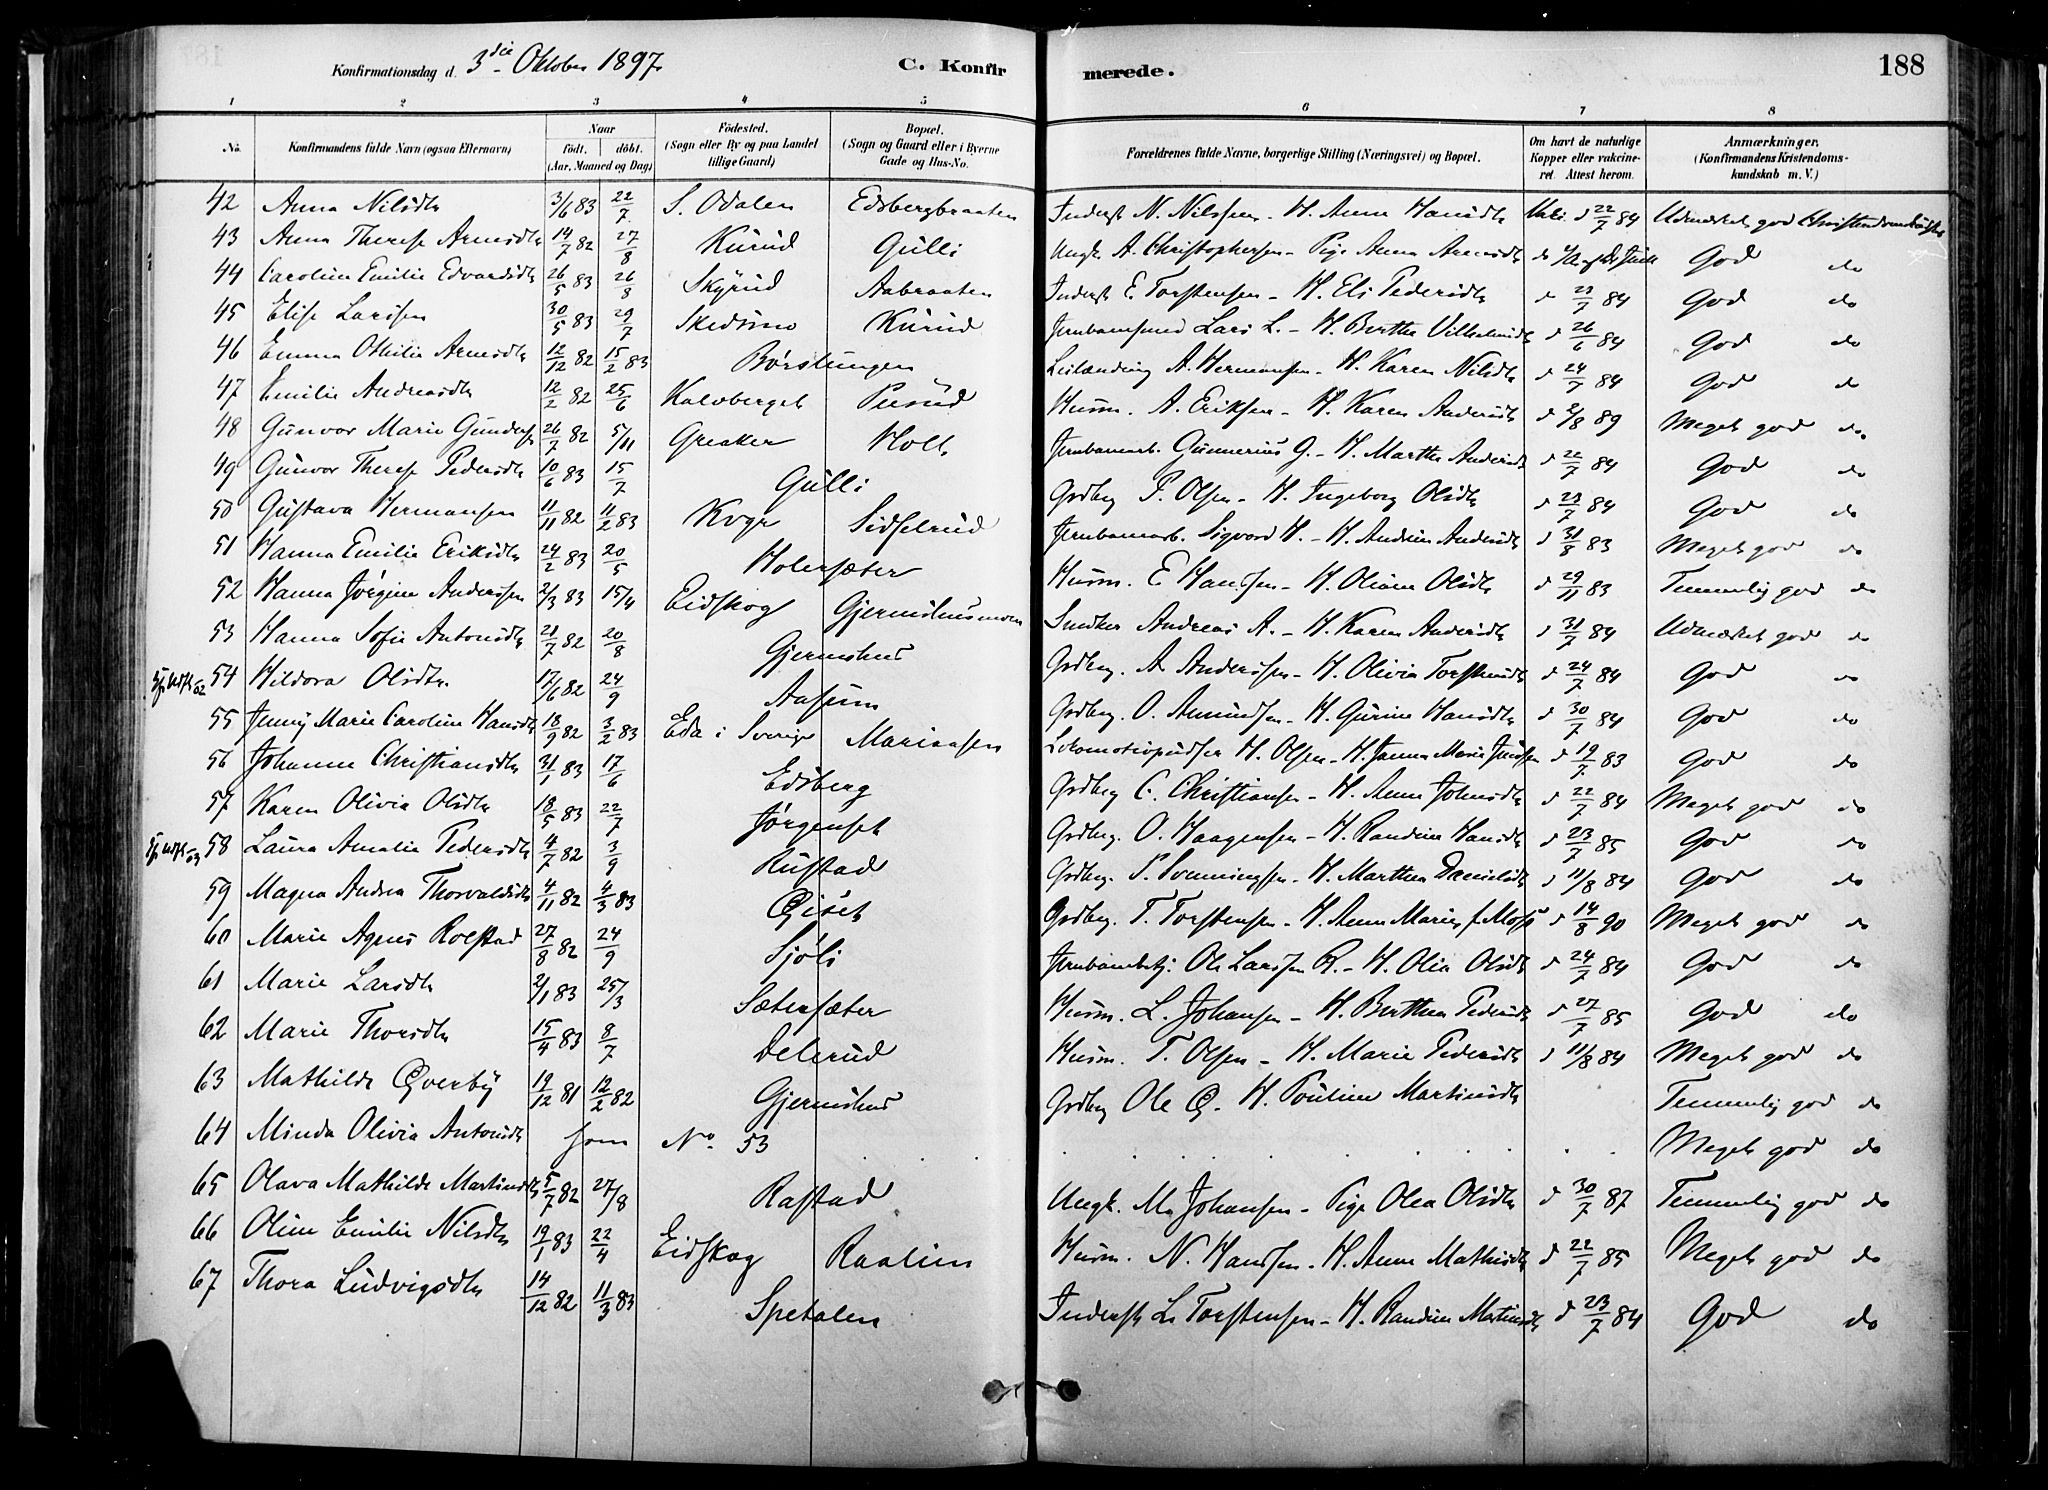 Konfirmationsdag d. 3die Oktober 1897. C. Konfirmerede. 188
1 2 3 4 5 6 7 8
No. Konfirmandens fulde Navn (ogsaa Efternavn) Naar født. døbt. (Aar, Maaned og Dag) Fødested. (Sogn eller By og paa Landet tillige Gaard) Bopæl. (Sogn og Gaard eller i Byerne Gade og Hus-No. Forældrenes fulde Navne, borgerlige Stilling (Næringsvei) og Bopæl. Om havt de naturlige Kopper eller vakcineret. Attest herom. Anmærkninger. (Konfirmandens Kristendomskundskab m. V.)
42 Anna Nilsdt. 3/6 83 22/7 S. Odalen Edsbergbraaten Inderst N. Nilssen - H. Anne Hansdt. d 22/7 84 Udmærket god
43 Anna Therese Arnesdt. 14/7 82 27/8 Kurud Gulli Ungk. A. Christophersen - Pige Anna Arnesdt. God do
44 Caroline Emilie Edvardsdt. 26/5 83 26/8 Skyrud Aabraaten Inderst E. Torstensen - H. Eli Pedersdt. d 23/7 84 God do
45 Elise Larssen 30/5 83 29/7 Skedsmo Kurud Lars L. - H. Berthe d 26/6 84 God do
46 Emma Othilie Arnesdt. 12/12 82 15/2 83 Børstungen Leilænding A. Hermansen - H. Karen Nilsdt. d 24/7 84 God do
47 Emilie Andreasdt. 12/2 82 25/6 Kalvberget Pusud Husm. A. Eriksen - H. Karen Andersdt. d 2/8 89 Meget god do
48 Gunvor Marie Gunders. 26/7 82 5/11 Greaker Holt Jernbanearb. Gunnerius G. - H. Marthe Andersdt. d 22/7 84 God do
49 Gunvor Therese Pedersdt. 10/6 83 15/7 Gulli Grdbrg P. Olsen - H. Ingeborg Olsdt. d 23/7 84 God do
50 Gustava Hermansen 11/11 82 11/2 83 Sidselrud Jernbanearb. Sigvard H. - H. Andrine Andersdt. d 31/8 83 Meget god do
51 Hanna Emilie Eriksdt. 24/2 83 20/5 Holersæter Husm. E Hanssen - H. Oliane Olsdt. d 29/11 83 Temmelig god do
52 Hanna Jørgine Anderssen 2/3 83 15/4 Eidskog Gjermshusmoen Snedker Andreas A. - H. Karen Andersdt. d 31/7 84 Udmærket god do
53 Hanna Sofie Antonsdt. 21/7 82 20/8 Gjermshus Grdbrg. A Anderssen - H. Olivia Torstensdt. d 24/7 84 God do
54 Hildora Olsdt. 17/6 82 24/9 Aasum Grdbrg. O. Amundsen - H. Gurine Hansdt. d 30/7 84 God do
55 Jenny Marie Caroline Hansdt. 18/9 82 3/2 83 Eda i Sverige Mariaasen Lokomotivpudser H. Olsen - H. Janna Marie d 19/7 83 God do
56 Johanne Christiansdt. 31/1 83 17/6 Edsberg Grdbrg C. Christiansen - H. Anne Johnsdt. d 22/7 84 Meget god do
57 Karen Olivia Olsdt. 18/5 83 22/7 Jørgenset Grdbrg. O. Haagensen - H. Randine Hansdt. d 23/7 85 God do
58 Laura Amalie Pedersdt. 4/7 82 3/9 Rustad Grdbrg. P. Svenningsen - H. Marthea Danielsdt. d 11/8 84 God do
59 Magna Andrea Thorvaldsdt. 4/11 82 4/3 83 Grdbrg. T. Torstensen - H. Anne Marie f. Moss d 14/8 90 Meget god do
60 Marie Agnes Rolstad 27/8 82 24/9 Sjøli Jernbanebetj. Ole Larssen R. - H. Olia Olsdt. d 24/7 84 God do
61 Marie Larsdt. 2/1 83 25/3 Sætersæter Husm. L. Johansen - H. Berthea Pedersdt. d 27/7 85 God do
62 Marie Thorsdt. 15/4 83 8/7 Delerud Husm. T. Olsen - H. Marie Pedersdt. d 11/8 84 Meget god do
63 Mathilde Qverby 19/12 81 12/2 82 Gjermshus Grdbrg Ole Q. H. Pouline Martinsdt. Temmelig god do
64 Minda Olivia Antonsdt. som No. 53 Meget god do
65 Olava Mathilde Martinsdt. 5/7 82 27/8 Rastad Ungk. M. Johansen - Pige Olea Olsdt. d 30/7 87 Temmelig god do
66 Oline Emilie Nilsdt. 19/1 83 22/4 Eidskog Raalien Husm. N. Hanssen - H. Anne Mathisdt. d 22/7 85 Meget god do
67 Thora Ludvigsdt. 14/12 82 11/3 83 Spetalen Inderst L. Torstensen - H. Randine Martinsdt. d 23/7 84 God do